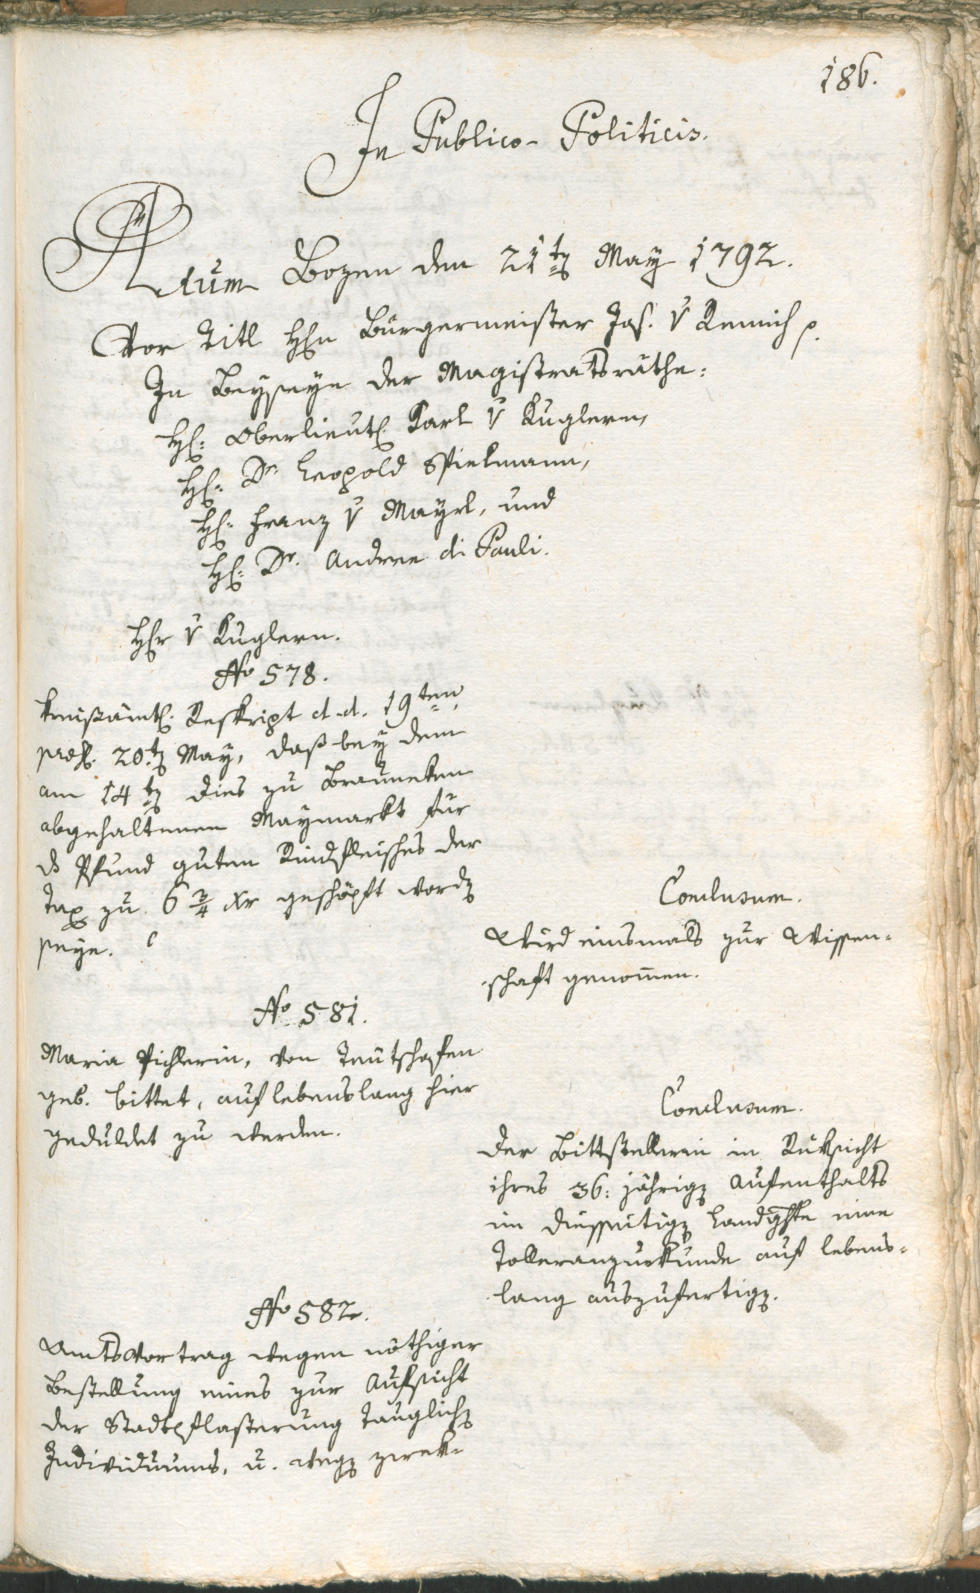 186.
In Publico-Politicis.
Actum Bozen den 21ten May 1792.
Vor Titl Hhn Bürgermeister Jos. v Remich p.
In Beyseyn der Magistratsräthe:
Hh: Oberlieut. Karl v Kuglern,
Hh: Dr. Leopold Spielmann,
Hh: Franz v Mayrl, und
Hh: Dr. Andree di Pauli.
Hhr v Kuglern.
No 578.
kreißämtl. Reskript d. d. 19ten
præs. 20ten May, daß bey dem
am 14ten dies zu Brauneken
abgehaltenen Maymarkt für
ds Pfund guten Rindfleisches der
Tax zu 6 3/4 xr geschöpft worden
seye.
Conclusum.
Wird einsmals zur Wissen-
schaft genommen.
No 581.
Maria Pichlerin, von Teutschofen
geb. bittet, auf lebenslang hier
geduldet zu werden.
Conclusum.
Der Bittstellerin in Rüksicht
ihres 36: jährigen Aufenthalts
im diesseitigen Landghte eine
Tolleranzurkunde auf lebens-
lang auszufertigen.
No 582.
Amtsvortrag wegen nöthiger
Bestellung eines zur Aufsicht
der Stadtpflasterung tauglichen
Individuums, u. wegen zwek-